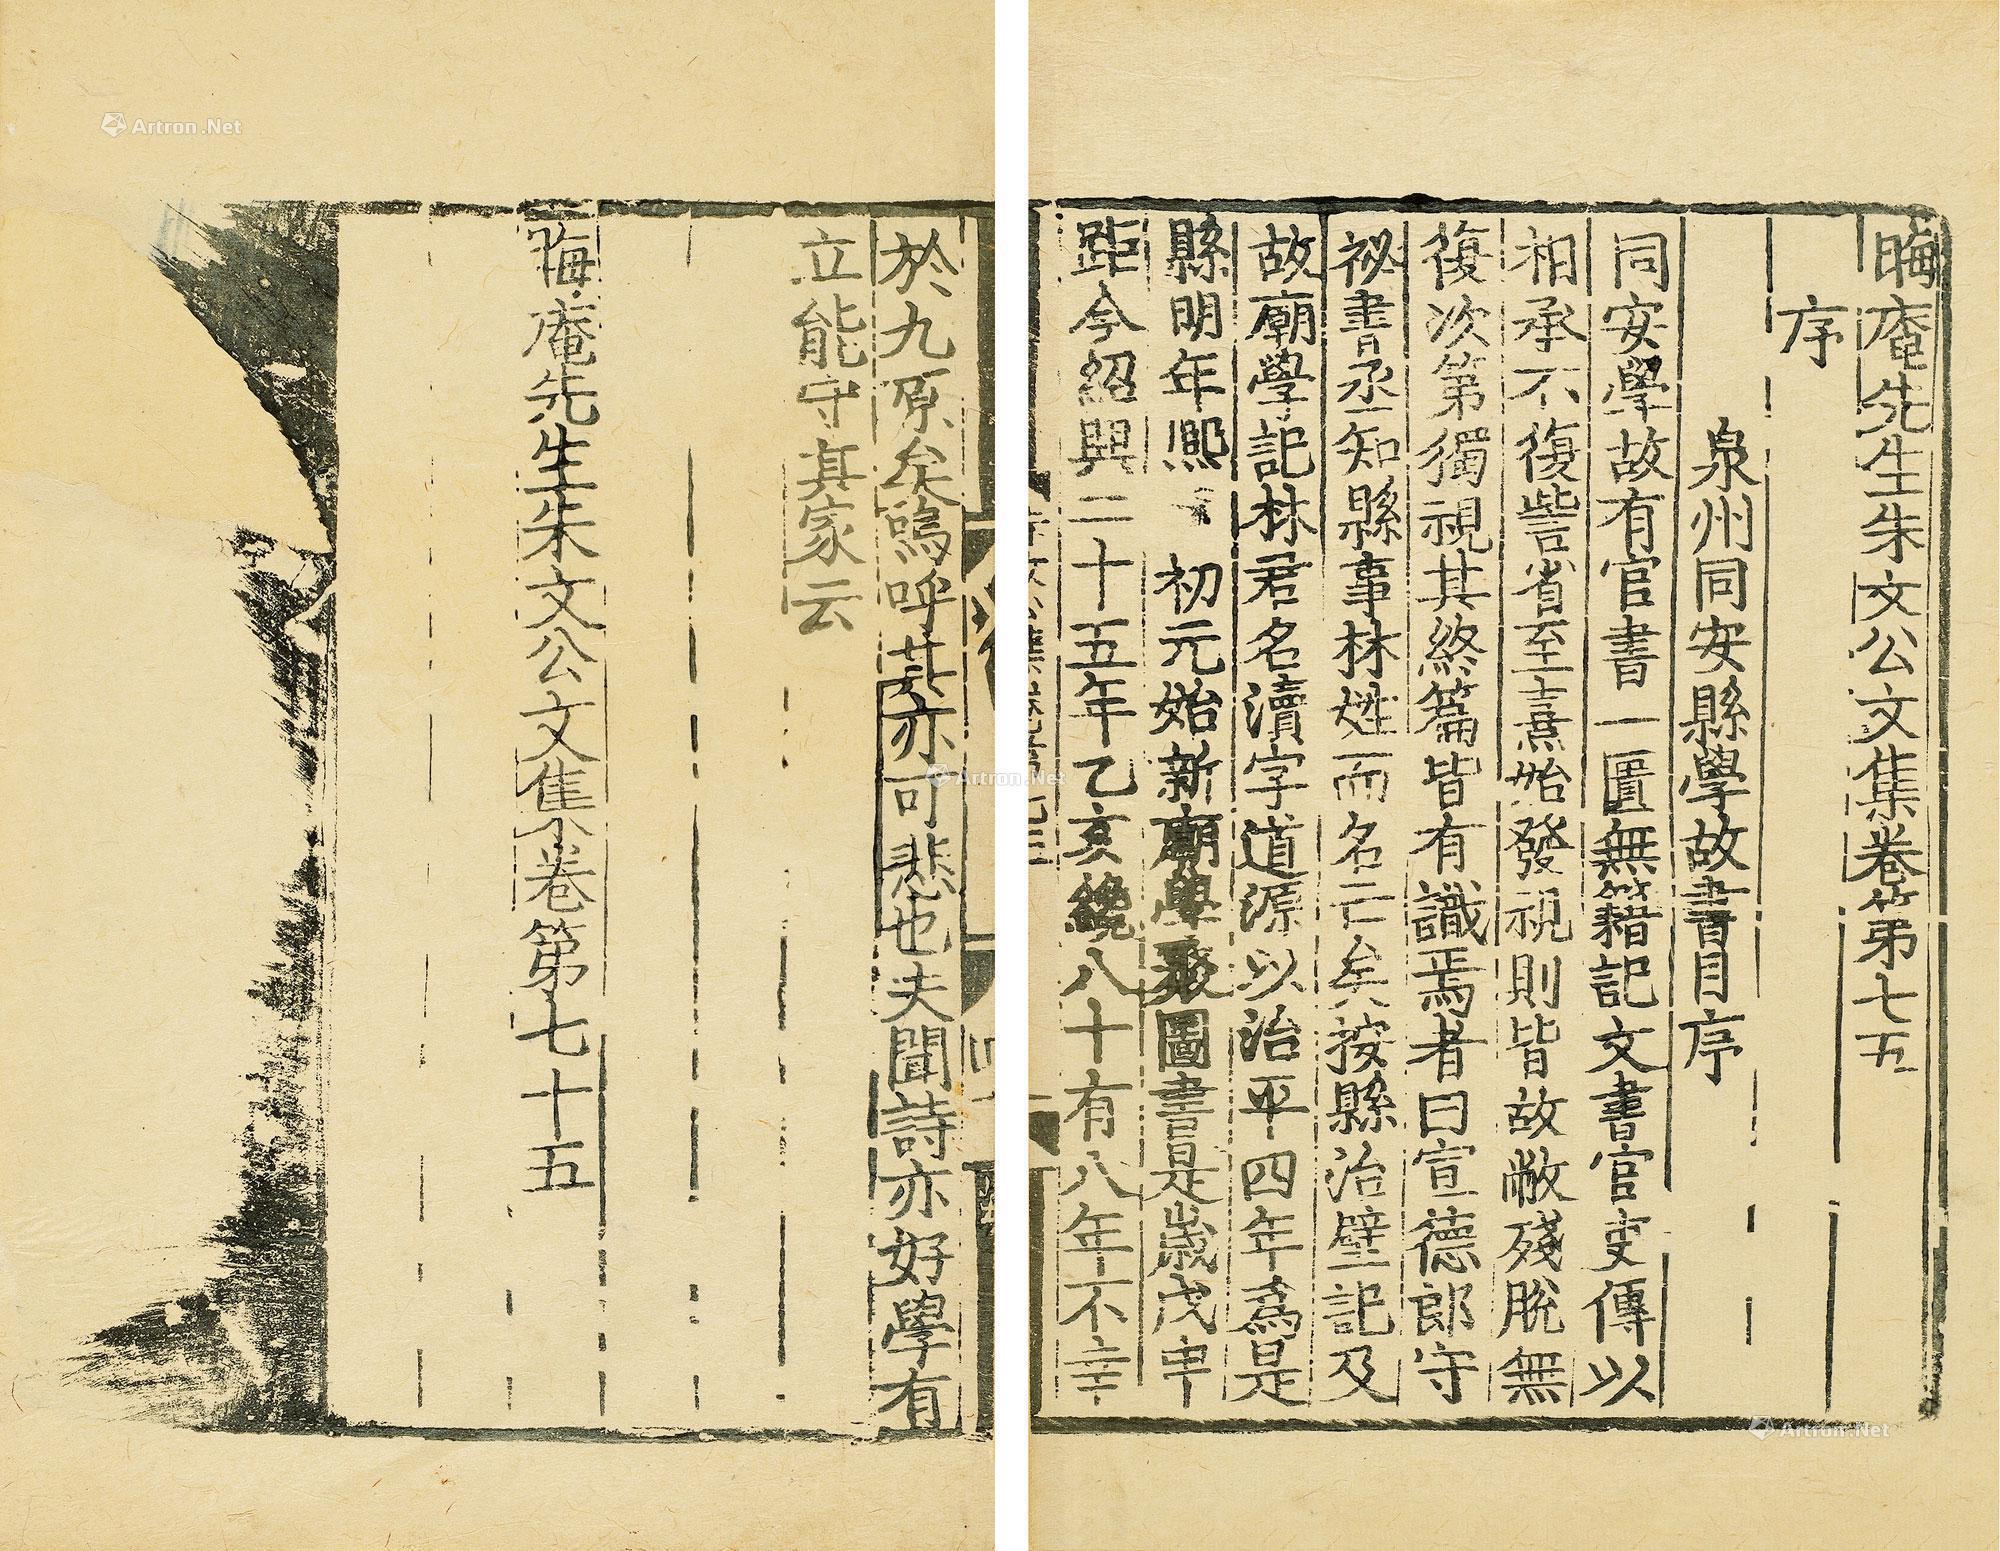 晦庵先生朱文公文集卷第七五
序
泉州同安縣學故書目序
同安學故有官書一匱無籍記文書官吏傳以
相承不復訾省至熹始發視則皆故敝殘脫無
復次第獨視其終篇皆有識焉者曰宣德郎守
祕書丞知縣事林姓而名亡矣按縣治壁記及
故廟學記林君名瀆字道源以治平四年爲是
縣明年熙 初元始新廟學聚圖書是歲戊申
距今紹興二十五年乙亥纔八十有八年不幸
於九原矣嗚呼其亦可悲也夫聞詩亦好學有
立能守其家云
晦庵先生朱文公文集卷第七十五
Artron.Net
Artron.Net
Artron.Net